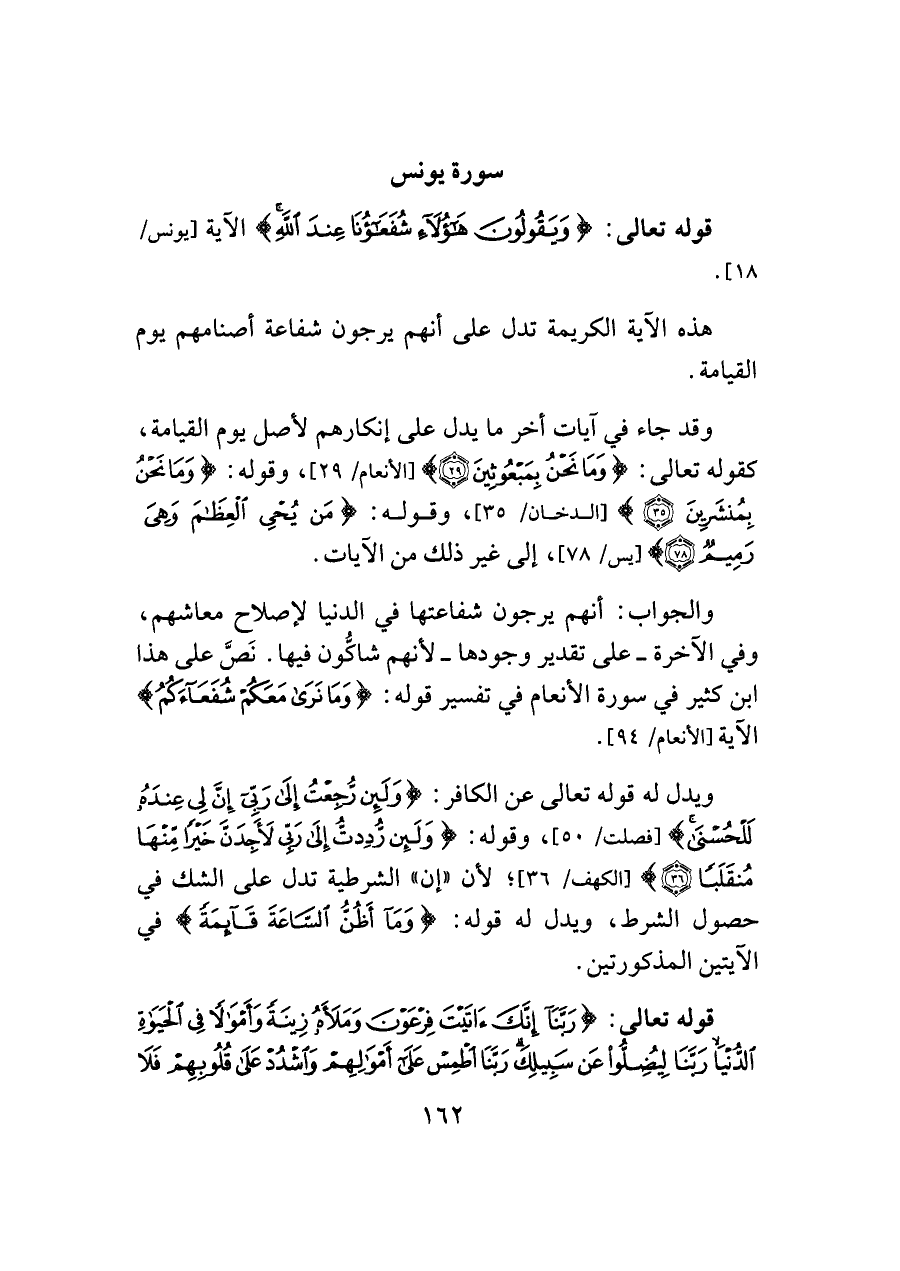 سورة يونس
قوله تعالى: ﴿ وَيَقُولُونَ هَٰٓؤُلَآءِ شُفَعَٰٓؤُنَا عِندَ ٱللَّهِۚ ﴾ الآية [يونس/
١٨].
هذه الآية الكريمة تدل على أنهم يرجون شفاعة أصنامهم يوم
القيامة.
وقد جاء في آيات أخر ما يدل على إنكارهم لأصل يوم القيامة،
كقوله تعالى: ﴿ وَمَا نَحْنُ بِمَبْعُوثِينَ ٢٩﴾ [الأنعام/ ٢٩]، وقوله: ﴿ وَمَا نَحْنُ
بِمُنشَرِينَ ٣٥ ﴾ [الـدخـان/ ٣٥]، وقـولـه: ﴿ مَن يُحْيِ ٱلْعِظَٰمَ وَهِىَ
رَمِيمٌ ٧٨﴾ [يس/ ٧٨]، إلى غير ذلك من الآيات.
والجواب: أنهم يرجون شفاعتها في الدنيا لإصلاح معاشهم،
وفي الآخرة ـ على تقدير وجودها ـ لأنهم شاكُّون فيها. نَصَّ على هذا
ابن كثير في سورة الأنعام في تفسير قوله: ﴿ وَمَا نَرَىٰ مَعَكُمْ شُفَعَآءَكُمُ ﴾
الآية [الأنعام/ ٩٤].
ويدل له قوله تعالى عن الكافر: ﴿ وَلَئِن رُّجِعْتُ إِلَىٰ رَبِّىٓ إِنَّ لِى عِندَهُۥ
لَلْحُسْنَىٰۚ ﴾ [فصلت/ ٥٠]، وقوله: ﴿ وَلَئِن رُّدِدتُّ إِلَىٰ رَبِّى لَأَجِدَنَّ خَيْرًا مِّنْهَا
مُنقَلَبًا ٣٦ ﴾ [الكهف/ ٣٦]؛ لأن «إن» الشرطية تدل على الشك في
حصول الشرط، ويدل له قوله: ﴿ وَمَآ أَظُنُّ ٱلسَّاعَةَ قَآئِمَةً ﴾ في
الآيتين المذكورتين.
قوله تعالى: ﴿ رَبَّنَآ إِنَّكَ ءَاتَيْتَ فِرْعَوْنَ وَمَلَأَهُۥ زِينَةً وَأَمْوَٰلًا فِى ٱلْحَيَوٰةِ
ٱلدُّنْيَا رَبَّنَا لِيُضِلُّوا۟ عَن سَبِيلِكَۖ رَبَّنَا ٱطْمِسْ عَلَىٰٓ أَمْوَٰلِهِمْ وَٱشْدُدْ عَلَىٰ قُلُوبِهِمْ فَلَا
١٦٢